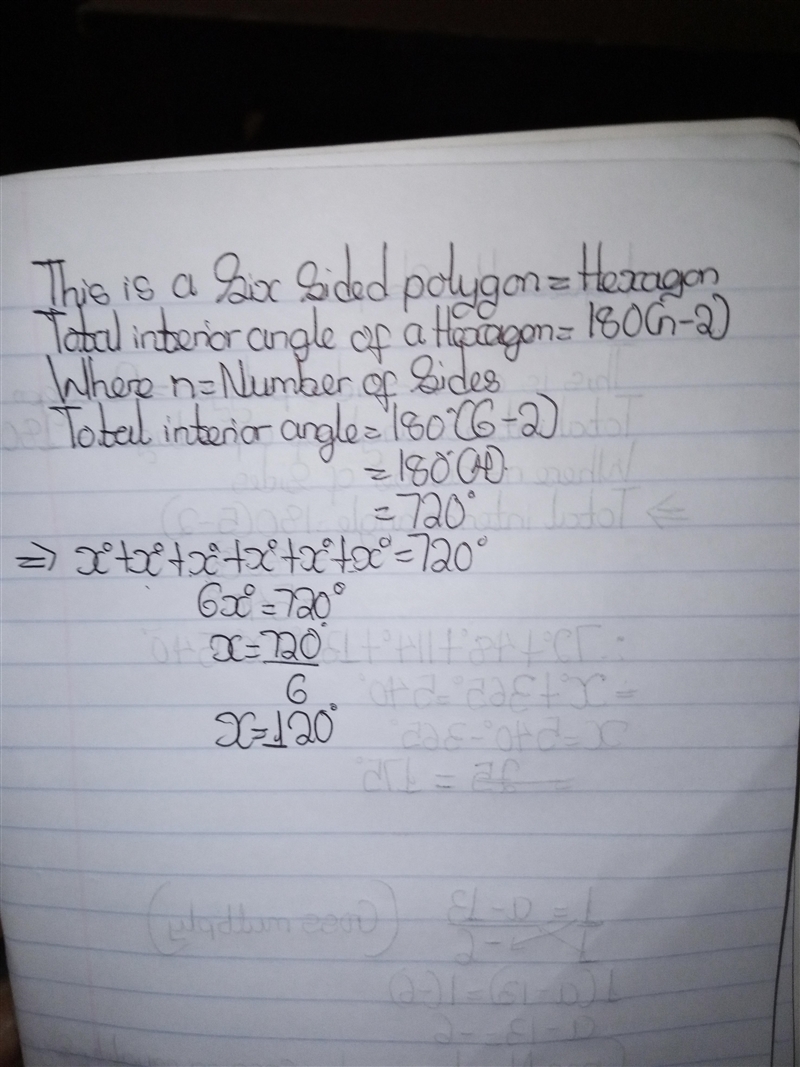 This is a Six Sided polygon = Hexagon
Total interior angle of a Hexagon = 180(n-2)
Where n = Number of Sides
Total interior angle = 180°(6-2)
= 180°(4)
= 720°
⇒ x°+x°+x°+x°+x°+x° = 720°
6x° = 720°
x = 720°
6
x = 120°